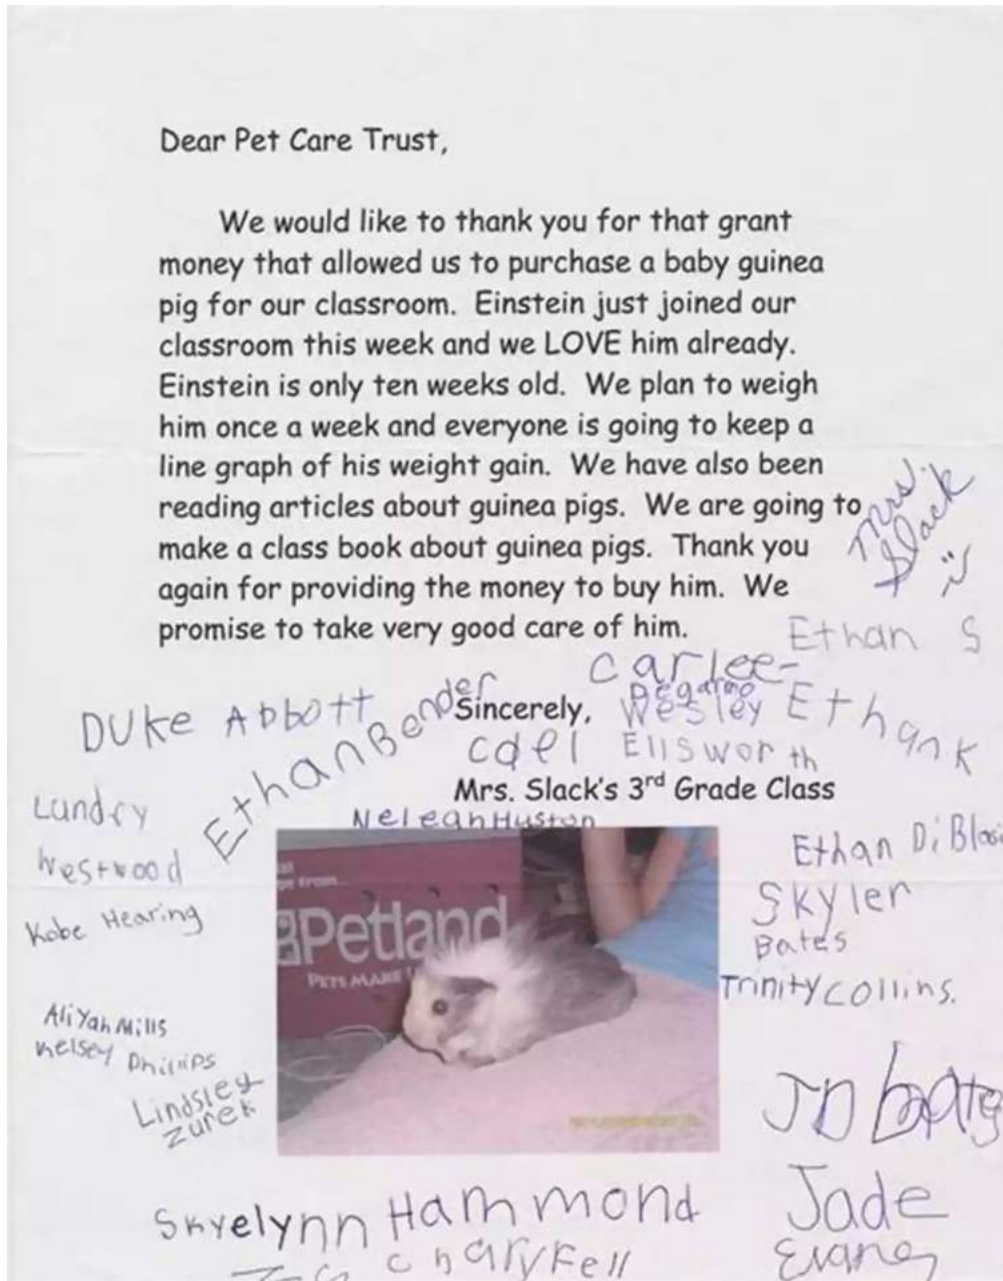 Dear Pet Care Trust,
We would like to thank you for that grant
money that allowed us to purchase a baby guinea
pig for our classroom. Einstein just joined our
classroom this week and we LOVE him already.
Einstein is only ten weeks old. We plan to weigh
him once a week and everyone is going to keep a
line graph of his weight gain. We have also been
reading articles about guinea pigs. We are going to
make a class book about guinea pigs. Thank you
again for providing the money to buy him. We
promise to take very good care of him.
Mrs. Slack
Ethan S
Carlee
Duke Abbott
Ethan Bender
Sincerely,
Wesley
Ellsworth
Ethan K
Mrs. Slack's 3rd Grade Class
Landry
Westwood
NeLeah Huston
Ethan DiBlas
Kobe Hearing
Skyler
Bates
Petland
Trinity Collins.
Aliyah Mills
Kelsey Phillips
Lindsley
Zurek
JD Bates
Skyelynn Hammond
Jade
Evans